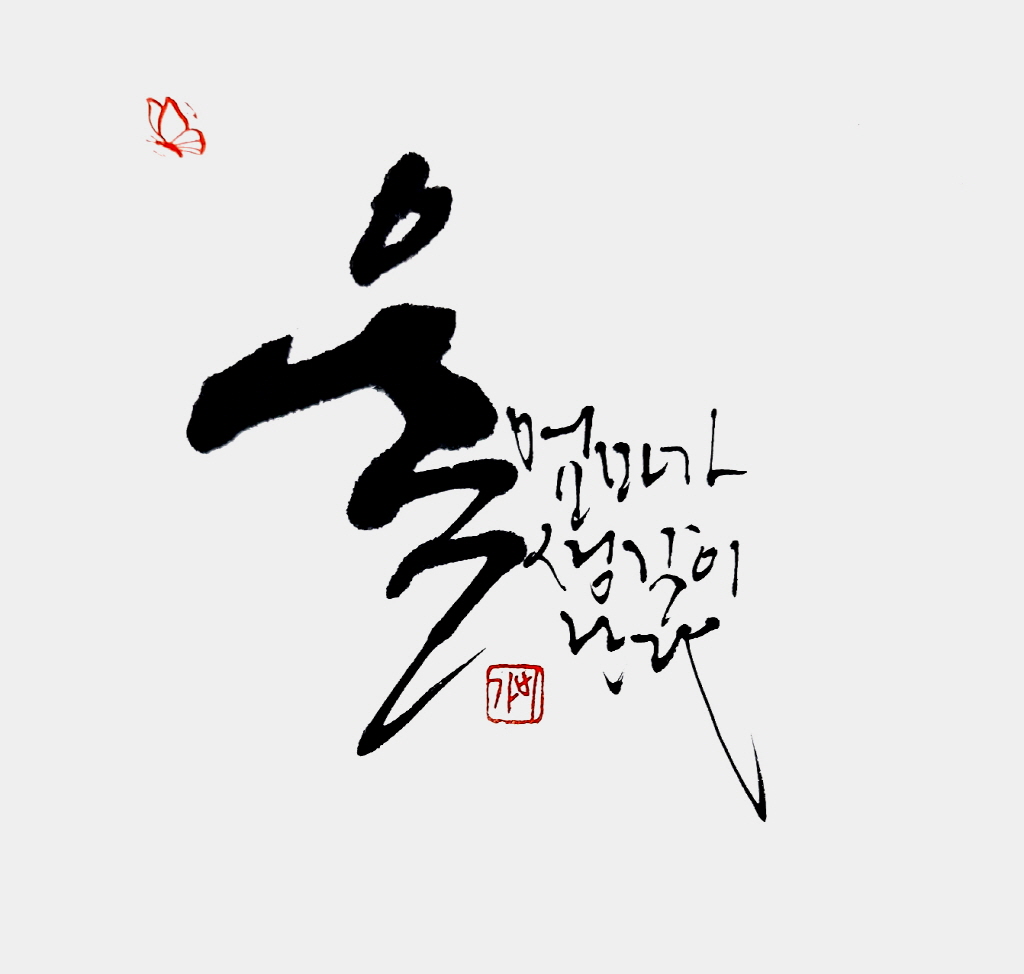 울
엄마가
생각이
난다
가비